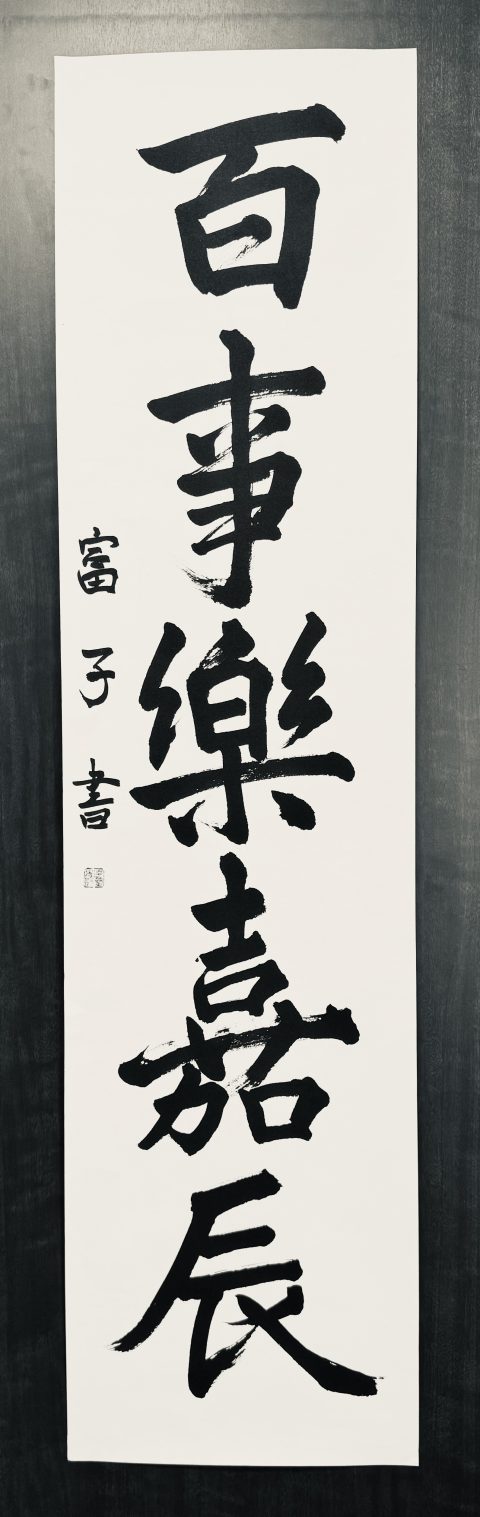 百事樂嘉辰
富子書